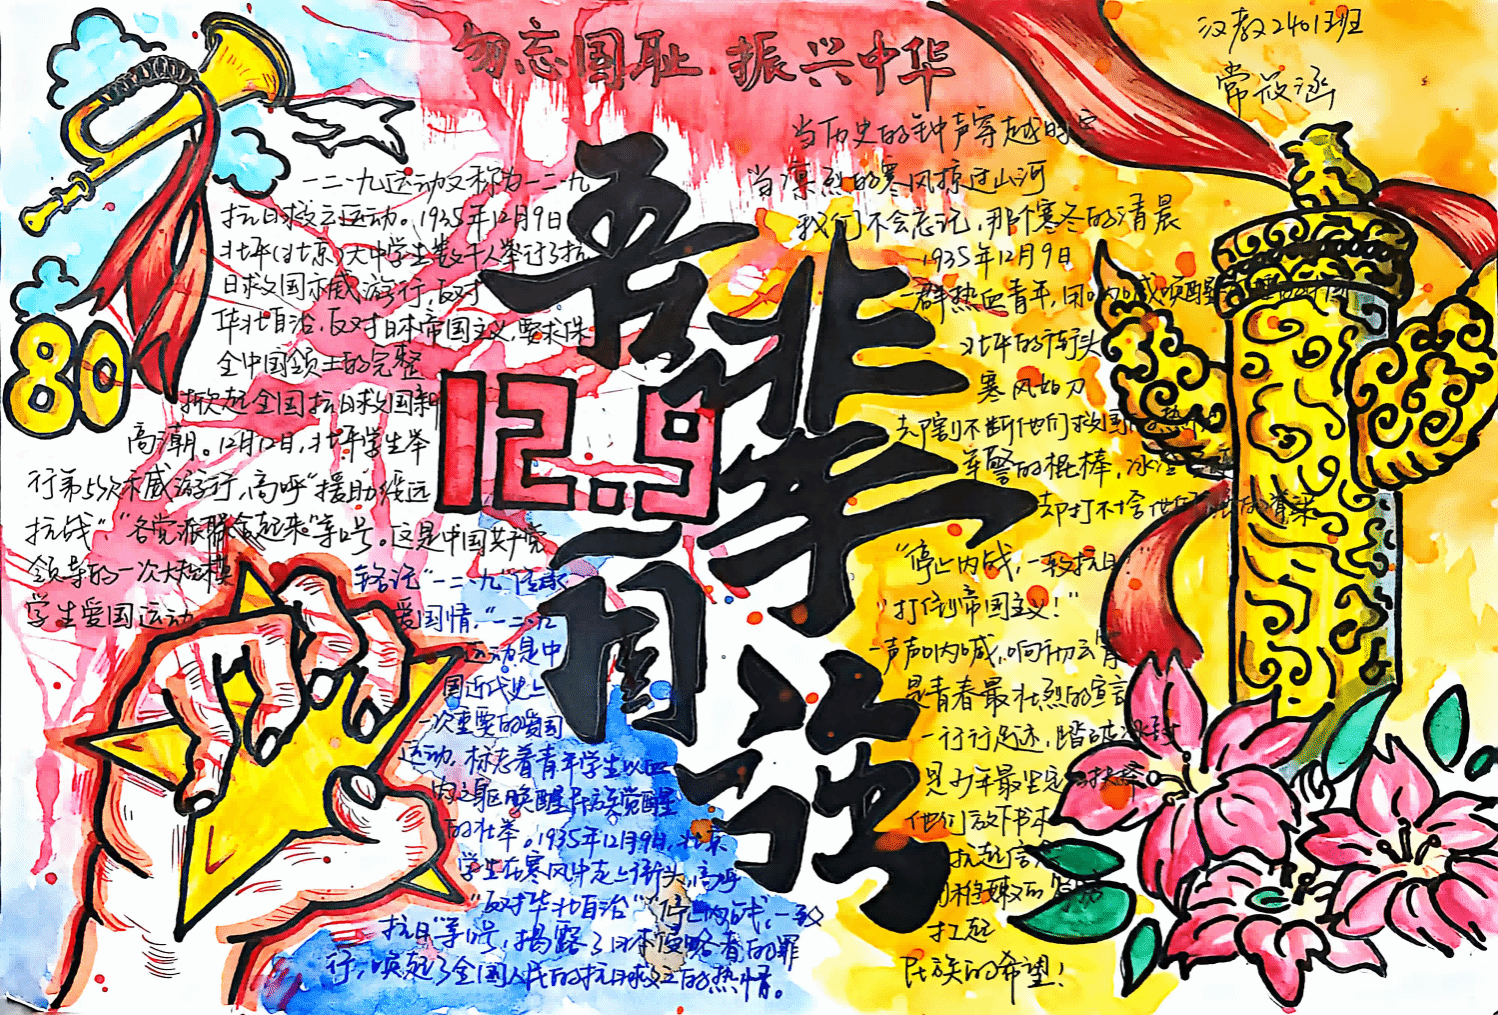 勿忘国耻 振兴中华
汉教2401班
常 涵
吾辈自强
12.9
80
一二·九运动又称为一二·九
抗日救亡运动。1935年12月9日
北平(北京)大中学生数千人举行了抗
日救国示威游行,反对
华北自治,反对日本帝国主义,要求保
全中国领土的完整
掀起全国抗日救国新
高潮。12月12日,北平学生举
行第5次示威游行,高呼“援助绥远
抗战”“各党派联合起来”等口号。这是中国共产党
领导的一次大规模
学生爱国运动。
铭记“一二·九”
爱国情,“一二·九
运动是中
国近代史上
一次重要的爱国
运动,标志着青年学生以血
肉之躯唤醒民族觉醒
的壮举。1935年12月9日,北京
学生在寒风中走上街头,高呼
“反对华北自治”“停止内战,一致
抗日”等口号,揭露了日本侵略者的罪
行,唤起了全国人民的抗日救亡的热情。
当历史的钟声穿越时空
当凛冽的寒风掠过山河
我们不会忘记,那个寒冬的清晨
1935年12月9日
一群热血青年,用呐喊唤醒
北平的街头
寒风如刀
却割不断他们救国的热
军警的棍棒,冰
却打不
“停止内战,一致抗日!”
“打倒帝国主义!”
一声声呐喊,响彻云霄
是青春最壮烈的宣言
一行行足迹,踏破冰封
是少年最坚定的
他们放下书本
扛起
稚嫩的
扛起
民族的希望!